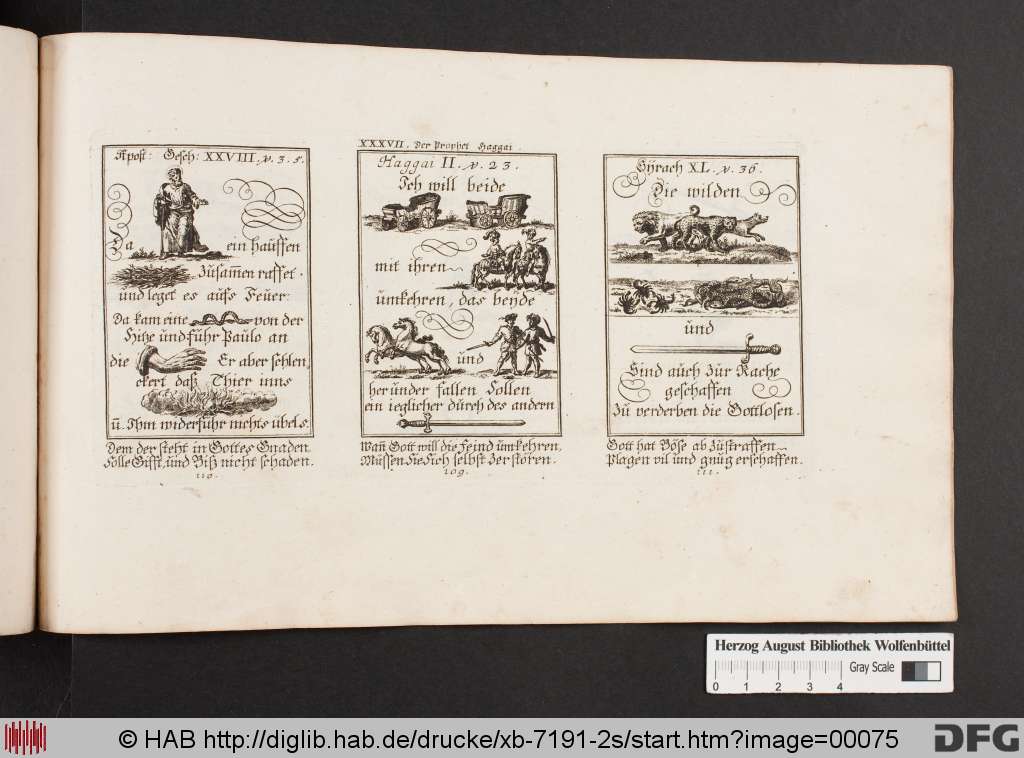 Apost: Gesch: XXVIII. v. 3. 5.
Da ein hauffen
Zusam̄en raffet.
und leget es aufs Feüer:
Da kam eine von der
Hitze und fuhr Paulo an
die Er aber schlen
ckert daß Thier inns
ū. Ihm widerfuhr nichts übels.
Dem der steht in Gottes Gnaden
Solle Gifft, und Biß nicht schaden.
110.
XXXVII. Der Prophet Haggai
Haggai II. v. 23.
Ich will beide
mit ihren
ümkehren, das beyde
und
heründer fallen Sollen
ein ieglicher dürch des andern
Wan̄ Gott will die Feind ümkehren,
Müssen Sie Sich selbst Zerstören.
109.
Sÿrach XL. v. 36.
Die wilden
ünd
Sind aüch Zür Rache
geschaffen
Zü verderben die Gottlosen.
Gott hat Böse abZüstraffen
Plagen vil ünd gnüg erschaffen.
111.
Herzog August Bibliothek Wolfenbüttel
Gray Scale
0 1 2 3 4
© HAB http://diglib.hab.de/drucke/xb-7191-2s/start.htm?image=00075
DFG